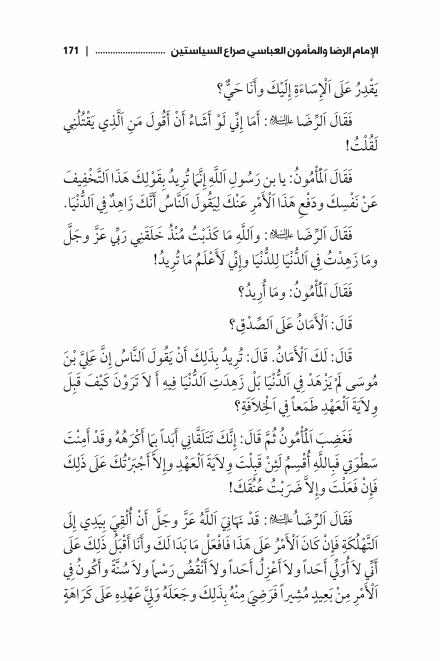 الإمام الرضا والمأمون العباسي صراع السياستين ............................ | 171
يَقْدِرُ عَلَى اَلْإِسَاءَةِ إِلَيْكَ وأَنَا حَيٌّ؟
فَقَالَ اَلرِّضَا عليه السلام: أَمَا إِنِّي لَوْ أَشَاءُ أَنْ أَقُولَ مَنِ اَلَّذِي يَقْتُلُنِي
لَقُلْتُ!
فَقَالَ اَلْمَأْمُونُ: يا بن رَسُولِ اَللَّهِ إِنَّمَا تُرِيدُ بِقَوْلِكَ هَذَا اَلتَّخْفِيفَ
عَنْ نَفْسِكَ ودَفْعِ هَذَا اَلْأَمْرِ عَنْكَ لِيَقُولَ اَلنَّاسُ أَنَّكَ زَاهِدٌ فِي اَلدُّنْيَا.
فَقَالَ اَلرِّضَا عليه السلام: واَللَّهِ مَا كَذَبْتُ مُنْذُ خَلَقَنِي رَبِّي عَزَّ وجَلَّ
ومَا زَهِدْتُ فِي اَلدُّنْيَا لِلدُّنْيَا وإِنِّي لَأَعْلَمُ مَا تُرِيدُ!
فَقَالَ اَلْمَأْمُونُ: ومَا أُرِيدُ؟
قَالَ: اَلْأَمَانُ عَلَى اَلصِّدْقِ؟
قَالَ: لَكَ اَلْأَمَانُ. قَالَ: تُرِيدُ بِذَلِكَ أَنْ يَقُولَ اَلنَّاسُ إِنَّ عَلِيَّ بْنَ
مُوسَى لَمْ يَزْهَدْ فِي اَلدُّنْيَا بَلْ زَهِدَتِ اَلدُّنْيَا فِيهِ أَ لاَ تَرَوْنَ كَيْفَ قَبِلَ
وِلاَيَةَ اَلْعَهْدِ طَمَعاً فِي اَلْخِلاَفَةِ؟
فَغَضِبَ اَلْمَأْمُونُ ثُمَّ قَالَ: إِنَّكَ تَتَلَقَّانِي أَبَداً بِمَا أَكْرَهُهُ وقَدْ أَمِنْتَ
سَطْوَتِي فَبِاللَّهِ أُقْسِمُ لَئِنْ قَبِلْتَ وِلاَيَةَ اَلْعَهْدِ وإِلاَّ أَجْبَرْتُكَ عَلَى ذَلِكَ
فَإِنْ فَعَلْتَ وإِلاَّ ضَرَبْتُ عُنُقَكَ!
فَقَالَ اَلرِّضَا عليه السلام: قَدْ نَهَانِيَ اَللَّهُ عَزَّ وجَلَّ أَنْ أُلْقِيَ بِيَدِي إِلَى
اَلتَّهْلُكَةِ فَإِنْ كَانَ اَلْأَمْرُ عَلَى هَذَا فَافْعَلْ مَا بَدَا لَكَ وأَنَا أَقْبَلُ ذَلِكَ عَلَى
أَنِّي لاَ أُوَلِّي أَحَداً ولاَ أَعْزِلُ أَحَداً ولاَ أَنْقُضُ رَسْماً ولاَ سُنَّةً وأَكُونُ فِي
اَلْأَمْرِ مِنْ بَعِيدٍ مُشِيراً فَرَضِيَ مِنْهُ بِذَلِكَ وجَعَلَهُ وَلِيَّ عَهْدِهِ عَلَى كَرَاهَةٍ